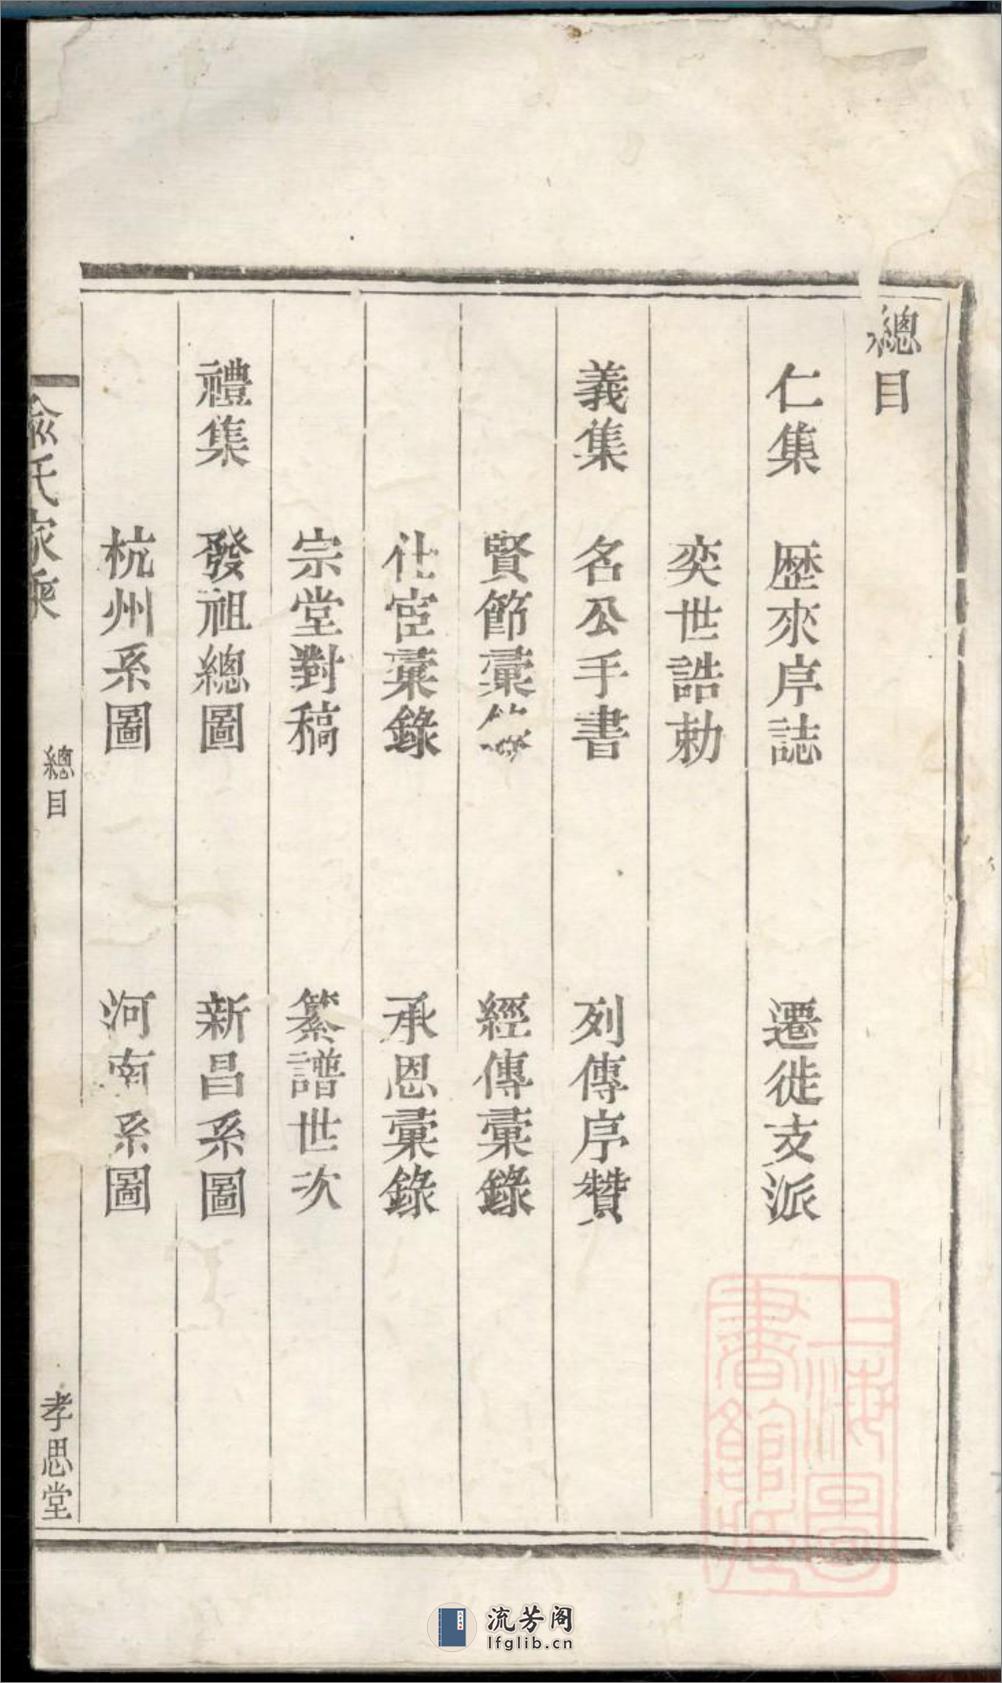 總目
仁集 歷來序誌 遷徙支派
奕世誥勅
義集 名公手書 列傳序贊
賢節彙錄 經傳彙錄
仕宦彙錄 承恩彙錄
宗堂對稿 纂譜世次
禮集 發祖總圖 新昌系圖
杭州系圖 河南系圖
俞氏家乘 總目 孝思堂
上海圖書館藏
流芳阁
lfglib.cn